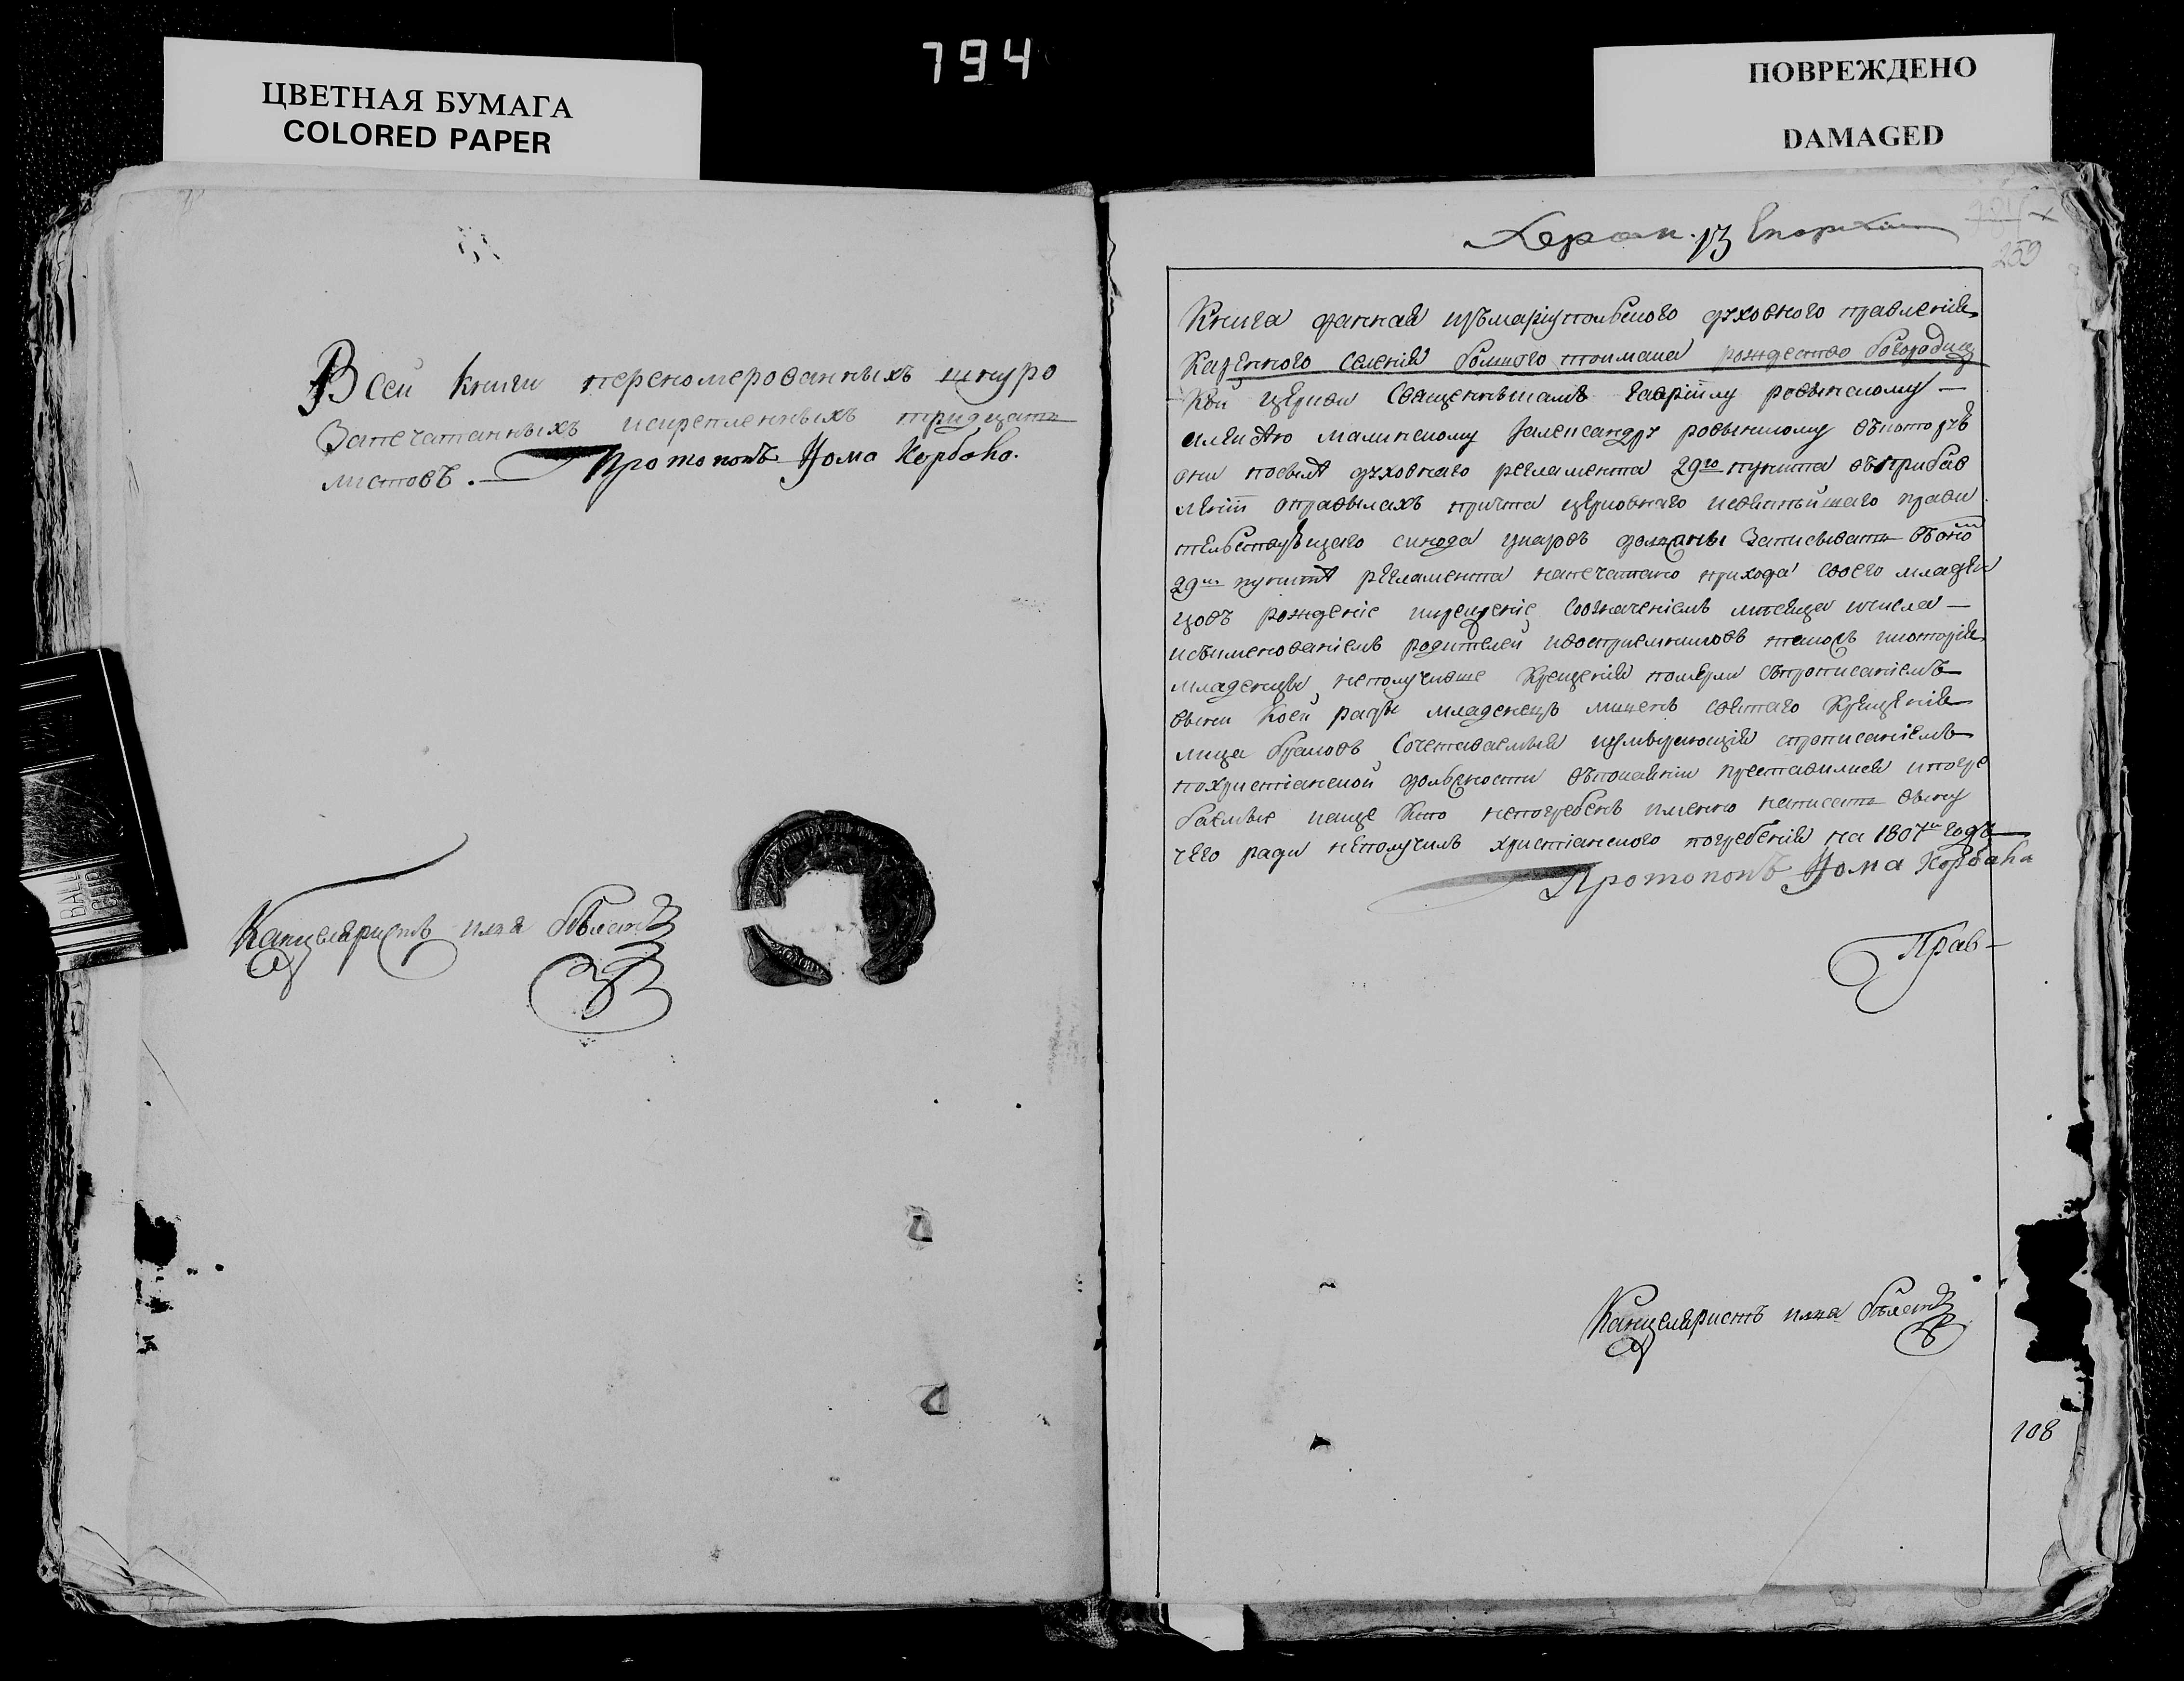 794
ЦВЕТНАЯ БУМАГА
COLORED PAPER
ПОВРЕЖДЕНО
DAMAGED
Всей книги переномерованныхъ шнуро
запечатанныхъ искрепленныхъ тридцать
листовъ.
Протопопъ Ѳома Корбаho.
Канцеляристъ илья
259
Книга данная изъмаріупольского духовного правленія
Казенного селенія болшого токмака рождество богородиц
кой церкви священникамъ гавріилу
малинскому иалександру въкоторъ
они посилѣ духовнаго регламента 29го пункта въприбав
леніи оправилахъ причта церковнаго исвятѣйшаго прави
телствующаго синода указовъ должны записывать
29м пунктѣ регламента напечатано прихода своего младен
цовъ рожденіе икрещеніе созначеніемъ мѣсяца ичисла
исъименованіемъ родителей ивоспріемниковъ такожъ икоторія
младенцы неполучивше крещенія померли съприписаніемъ
вины коей рады младенецъ лишенъ святаго крещенія
лица браковъ сочетаваемыя иумирающія спрописаніемъ
похристіанской должности въпокаяніи преставилися ипогре
баемые иаще кто непогребенъ имянно написать вину
чего ради неполучилъ христіанского погребенія на 1807й годъ
Протопопъ Ѳома Корбаhо
Прав-
Канцеляристъ илья
108